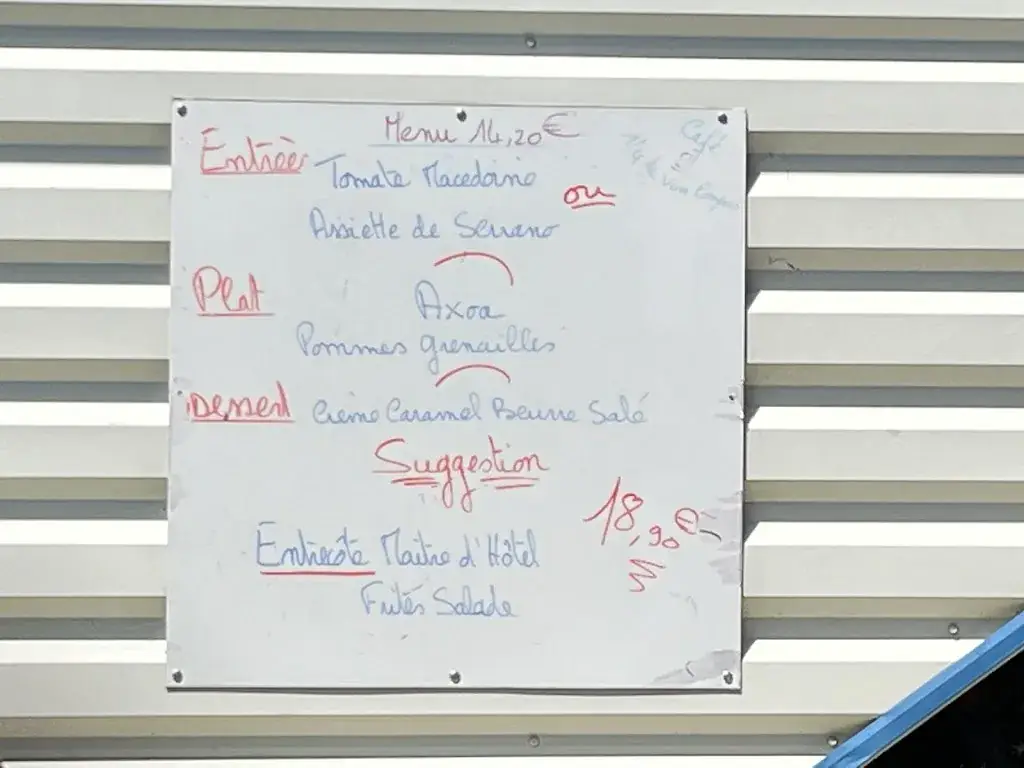 Menu 14,20€
Café
1/4 de vin compris
Entrées
Tomate Macedoine
ou
Assiette de Serrano
Plat
Axoa
Pommes grenailles
Dessert
Crème Caramel Beurre Salé
Suggestion
18,90€
Entrecôte Maitre d'Hôtel
Frites Salade